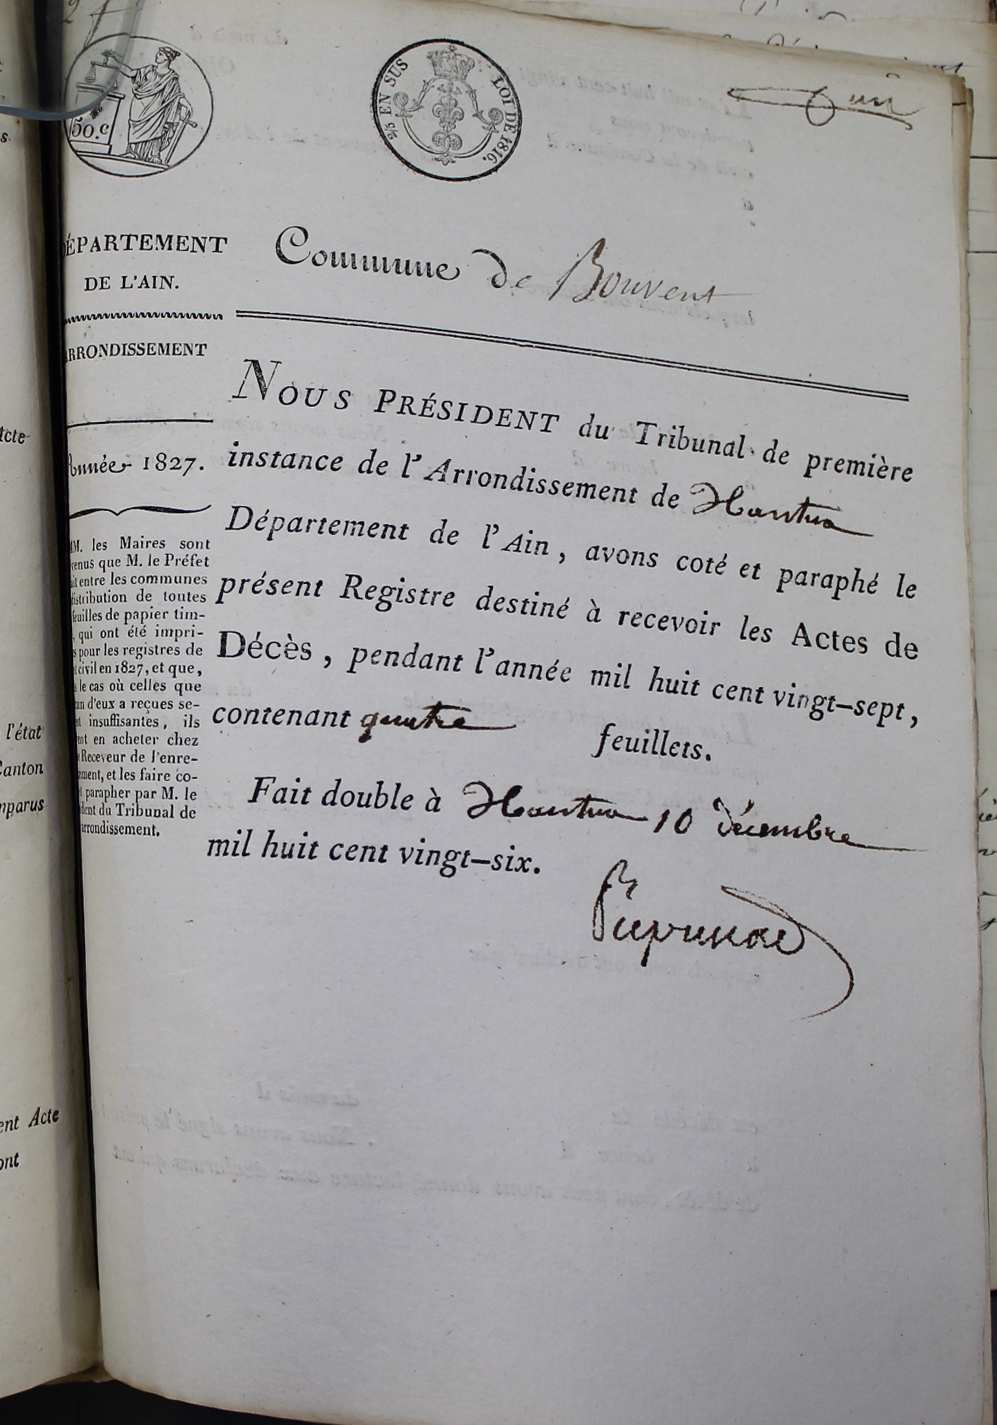 50.c
5/5 EN SUS LOI DE 1816.
un
DÉPARTEMENT
DE L'AIN.
Commune de Bouvent
ARRONDISSEMENT
Année 1827.
NOUS PRÉSIDENT du Tribunal de première
instance de l'Arrondissement de Nantua
Département de l'Ain, avons coté et paraphé le
présent Registre destiné à recevoir les Actes de
Décès, pendant l'année mil huit cent vingt-sept,
contenant quatre feuillets.
Fait double à Nantua 10 décembre
mil huit cent vingt-six.
MM. les Maires sont
venus que M. le Préfet
it entre les communes
istribution de toutes
feuilles de papier tim-
, qui ont été impri-
s pour les registres de
t civil en 1827, et que,
le cas où celles que
un d'eux a reçues se-
t insuffisantes, ils
nt en acheter chez
Receveur de l'enre-
ment, et les faire co-
t parapher par M. le
dent du Tribunal de
arrondissement.
Acte
l'état
Canton
mparus
ent Acte
ont